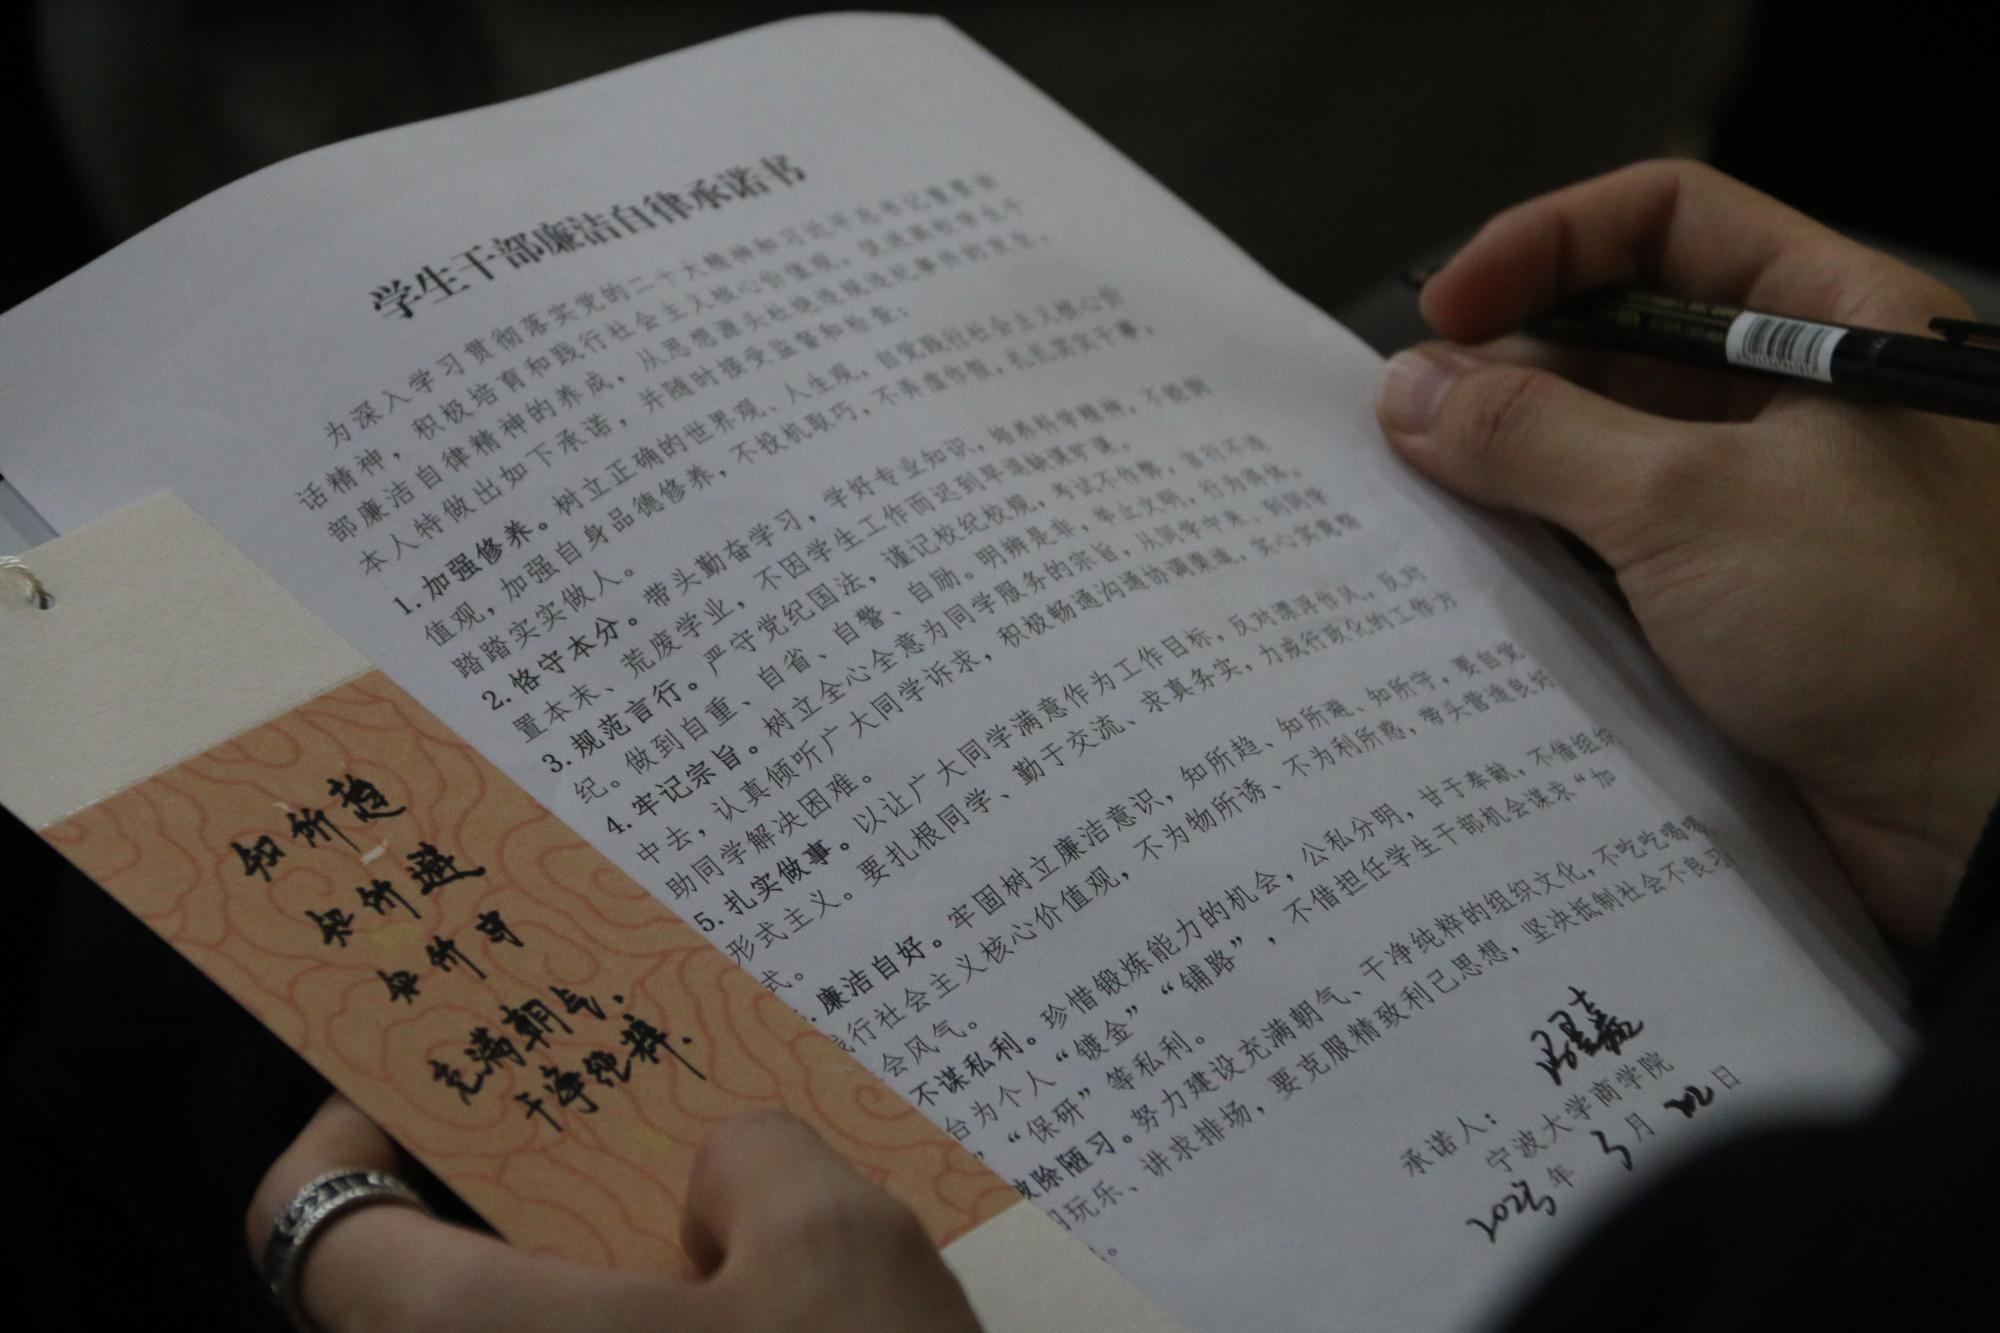 学生干部廉洁自律承诺书
为深入学习贯彻落实党的二十大精神和习近平总书记重要讲
话精神，积极培育和践行社会主义核心价值观，促进高校学生干
部廉洁自律精神的养成，从思想源头杜绝违规违纪事件的发生，
本人特做出如下承诺，并随时接受监督和检查：
1. 加强修养。树立正确的世界观、人生观，自觉践行社会主义核心价
值观，加强自身品德修养，不投机取巧，不弄虚作假，扎扎实实干事，
踏踏实实做人。
2. 恪守本分。带头勤奋学习，学好专业知识，培养科学精神，不能倒
置本末、荒废学业，不因学生工作而迟到早退缺课旷课。
3. 规范言行。严守党纪国法，谨记校纪校规，考试不作弊，言行不违
纪。做到自重、自省、自警、自励。明辨是非，举止文明，行为得体。
4. 牢记宗旨。树立全心全意为同学服务的宗旨，从同学中来，到同学
中去，认真倾听广大同学诉求，积极畅通沟通协调渠道，实心实意帮
助同学解决困难。
5. 扎实做事。以让广大同学满意作为工作目标，反对漂浮作风，反对
形式主义。要扎根同学、勤于交流、求真务实，力戒行政化的工作方
式。
廉洁自好。牢固树立廉洁意识，知所趋、知所避、知所守，要自觉
行社会主义核心价值观，不为物所诱、不为利所惑，带头营造良好
会风气。
不谋私利。珍惜锻炼能力的机会，公私分明，甘于奉献，不借组织
台为个人“镀金”“铺路”，不借担任学生干部机会谋求“加
”，“保研”等私利。
破除陋习。努力建设充满朝气、干净纯粹的组织文化，不吃吃喝喝，
玩乐、讲求排场，要克服精致利己思想，坚决抵制社会不良习
。
承诺人：
宁波大学商学院
2023年3月22日
知所趋
知所避
知所守
充满朝气，
干净纯粹.